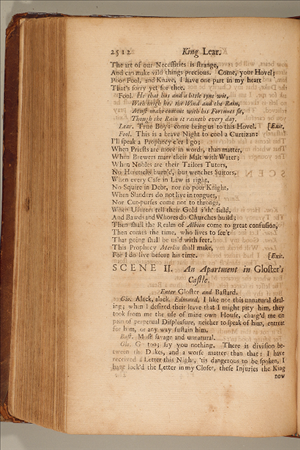 2512 King Lear.
The art of our Necessities is strange,
And can make vild things precious. Come, your Hovel;
Poor Fool, and Knave, I have one part in my heart
That's sorry yet for thee.
Fool. He that has and a little tyne wit,
With heigh ho, the Wind and the Rain,
Must make content with his Fortunes fit,
Though the Rain it raineth every day.
Lear. True Boy: come bring us to this Hovel. [Exit.
Fool. This is a brave Night to cool a Curtizan:
I'll speak a Prophecy e'er I go:
When Priests are more in words, than matter,
When Brewers marr their Malt with Water;
When Nobles are their Tailors Tutors,
No Hereticks burn'd, but wenches Suitors,
When every Case in Law is right,
No Squire in Debt, nor no poor Knight.
When Slanders do not live in tongues,
Nor Cut-purses come not to throngs;
When Usurers tell their Gold i'th' field,
And Bawds and Whores do Churches build;
Then shall the Realm of Albion come to great confusion,
Then comes the time, who lives to see't
That going shall be us'd with feet.
This Prophecy Merlin shall make,
For I do live before his time. [Exit.
SCENE II. An Apartment in Gloster's
Castle.
Enter Gloster and Bastard.
Glo. Alack, alack, Edmund, I like not this unnatural deal-
ing; when I desired their leave that I might pity him, they
took from me the use of mine own House, charg'd me on
pain of perpetual Displeasure, neither to speak of him, entreat
for him, or any way sustain him.
Bast. Most savage and unnatural.
Glo. Go too; say you nothing. There is division be-
tween the Dukes, and a worse matter than that: I have
received a Letter this Night, 'tis dangerous to be spoken, I
have lock'd the Letter in my Closet, these Injuries the King
now